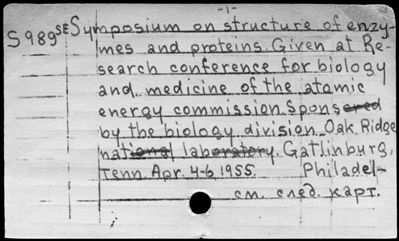 -1-
S 989 SE Symposium on structure of enzy-
mes and proteins. Given at Re-
search conference for biology
and medicine of the atomic
energy commission. Sponsored
by the biology division. Oak Ridge
national laboratory. Gatlinburg,
Tenn. Apr. 4-6 1955. Philadel-
см. след. карт.